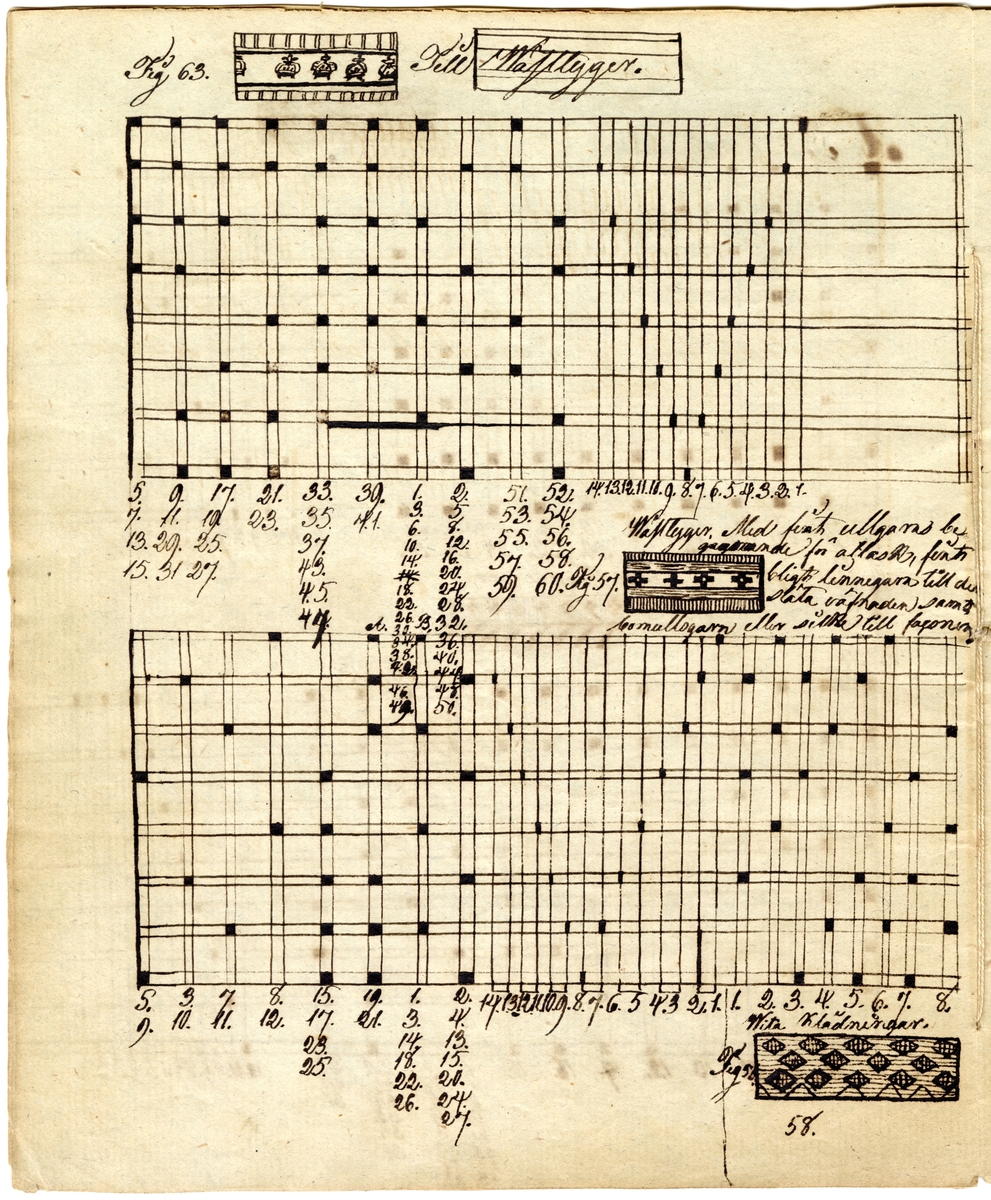 Fig 63. Till Wäfllyger.
5. 9. 17. 21. 33. 39. 1. 2. 51. 52. 14. 13. 12. 11. 10. 9. 8. 7. 6. 5. 4. 3. 2. 1.
7. 11. 19. 23. 35. 41. 3. 5. 53. 54.
13. 29. 25. 37. 6. 8. 55. 56.
15. 31 27. 43. 10. 12. 57. 58.
45. 14. 16. 59. 60.
47. 18. 20.
22. 24
26. 28.
A. B. 32.
34. 36.
38. 40.
42. 44
46. 48.
49. 50.
Wäfllyger, Med fint ullgarns be
för atlask, fint
Fig 57. bligt linnegarn till de
släta väfnaden samt
bomullsgarn eller silke till façonen
5. 3. 7. 8. 15. 19. 1. 2. 14. 13. 12. 11. 10. 9. 8. 7. 6. 5 4. 3 2. 1. 1. 2. 3. 4. 5. 6. 7. 8.
9. 10. 11. 12. 17. 21. 3. 4.
23. 14. 13.
25. 18. 15.
22. 20.
26. 24.
27.
Wita Klädningar.
Fig 58
58.